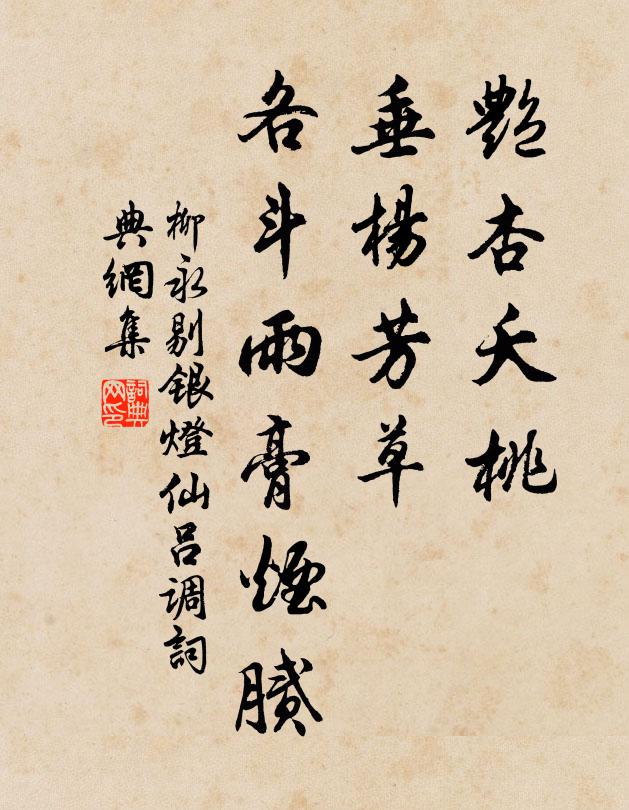 艷杏夭桃
垂楊芳草
各斗雨膏煙膩
柳永剔銀燈仙呂調詞
典網集
詞典
网印